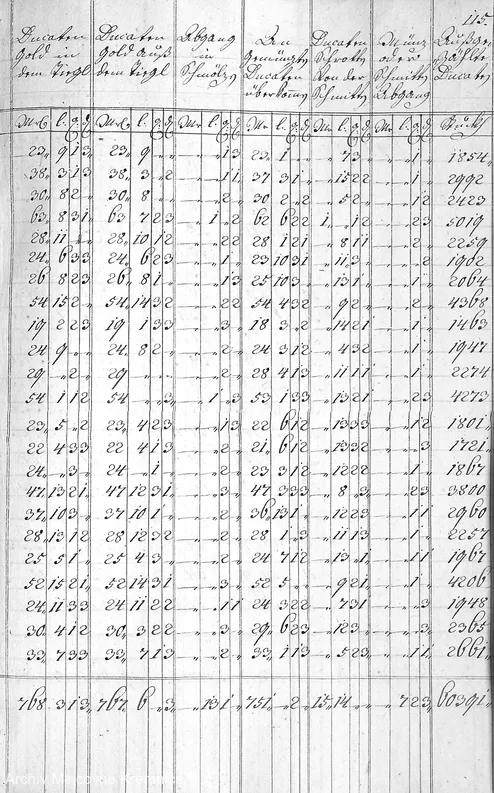 115.
Ducaten Ducaten Abgang An Ducaten Müntz
Gold in Gold auß in Schrott oder
dem Tiegl dem Tiegl Schmöltz Ducaten Von der Schmitt
Schmitt Abgang Ducaten
23 9 1 3 23 9 1 3 23 1 7 3 1 1854
38 3 1 3 38 3 2 1 1 37 3 1 15 2 2 1 2992
30 8 2 30 8 2 30 2 2 5 2 1 2 2423
63 8 3 1 63 7 2 3 1 2 62 6 2 2 1 1 2 2 3 5019
28 11 28 10 1 2 2 2 28 1 2 1 8 1 1 2 2259
24 6 3 3 24 6 2 3 1 23 10 3 1 11 3 2 1902
26 8 2 3 26 8 1 1 3 25 10 3 13 1 1 2064
54 15 2 54 14 3 2 2 2 54 4 3 2 9 2 2 4368
19 2 2 3 19 1 3 3 3 18 3 2 14 2 1 1 1463
24 9 24 8 2 2 24 3 1 2 4 3 2 1 1947
29 2 29 2 28 4 1 3 11 1 1 1 2274
54 1 1 2 54 3 1 3 53 13 3 13 2 1 2 3 4273
23 5 2 23 4 2 3 1 3 22 6 1 2 13 3 3 1 2 1801
22 4 3 3 22 4 1 3 2 21 6 1 2 13 3 2 3 1721
24 3 24 1 2 23 3 1 2 12 2 2 1 1867
47 13 2 1 47 12 3 1 3 47 3 3 3 8 3 2 3 3800
37 10 3 37 10 1 2 36 13 1 12 2 3 1 1 2960
28 13 1 2 28 12 3 2 2 28 1 3 11 1 3 1 2257
25 5 1 25 4 3 2 24 7 1 2 13 1 1 1 1967
52 15 2 1 52 14 3 1 3 52 5 9 2 1 1 4206
24 11 3 3 24 11 2 2 1 1 24 3 2 2 7 3 1 3 1948
30 4 1 2 30 3 2 2 3 29 6 2 3 12 3 3 2365
33 7 3 3 33 7 1 3 2 33 1 1 3 5 2 3 1 1 2661
768 3 1 3 767 6 3 13 1 751 2 15 14 7 2 3 60391
Archiv Mincovne Kremnica